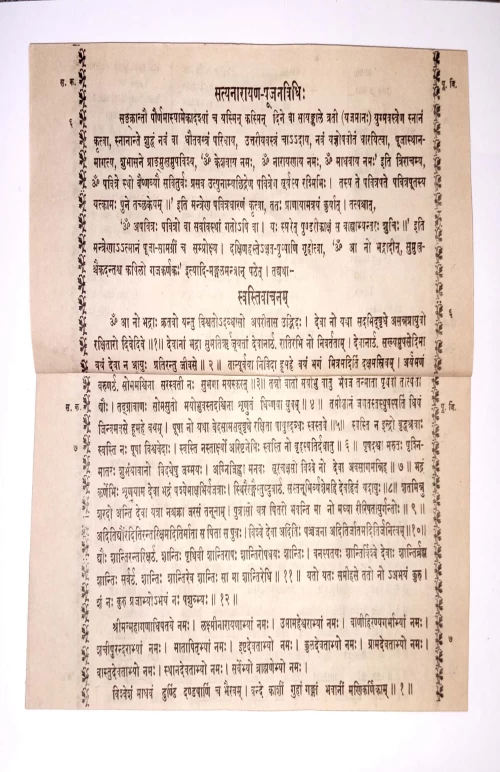 सत्यनारायण-पूजनविधिः
सङ्क्रान्तौ पौर्णमास्यामेकादश्यां च यस्मिन् कस्मिन् दिने वा सायङ्काले व्रती (यजमानः) युग्मवस्त्रेण स्नानं
स. क.
पू. वि.
६
कृत्वा, स्नानान्ते शुद्धं नवं वा धौतवस्त्रं परिधाय, उत्तरीयवस्त्रं चाऽऽदाय, नवं यज्ञोपवीतं धारयित्वा, पूजास्थान-
मागत्य, शुभासने प्राङ्मुखमुपविश्य, 'ॐ केशवाय नमः, ॐ नारायणाय नमः, ॐ माधवाय नमः' इति त्रिराचम्य,
ॐ पवित्रे स्थो वैष्णव्यौ सवितुर्वः प्रसव उत्पुनाम्यच्छिद्रेण पवित्रेण सूर्यस्य रश्मिभिः । तस्य ते पवित्रपते पवित्रपूतस्य
यत्कामः पुने तच्छकेयम् ॥' इति मन्त्रेण पवित्रधारणं कृत्वा, ततः प्राणायामत्रयं कुर्यात् । तत्पश्चात्,
'ॐ अपवित्रः पवित्रो वा सर्वावस्थां गतोऽपि वा । यः स्मरेत् पुण्डरीकाक्षं स बाह्याभ्यन्तरः शुचिः ॥' इति
मन्त्रेणाऽऽत्मानं पूजा-सामग्रीं च सम्प्रोक्ष्य । दक्षिणहस्तेऽक्षत-पुष्पाणि गृहीत्वा, 'ॐ आ नो भद्रादीन्, सुमुख-
श्चैकदन्तश्च कपिलो गजकर्णकः' इत्यादि-मङ्गलमन्त्रान् पठेत् । तद्यथा—
स्वस्तिवाचनम्
ॐ आ नो भद्राः क्रतवो यन्तु विश्वतोऽदब्धासो अपरीतास उद्भिदः । देवा नो यथा सदमिद्वृधे असन्नप्रायुवो
६
रक्षितारो दिवेदिवे ॥१॥ देवानां भद्रा सुमतिर्ऋजूयतां देवानाᳯ रातिरभि नो निवर्तताम् । देवानाᳯ सख्यमुपसेदिमा
वयं देवा न आयुः प्रतिरन्तु जीवसे ॥ २ ॥ तान्पूर्वया निविदा हूमहे वयं भगं मित्रमदितिं दक्षमस्रिधम् । अर्यमणं
वरुणᳯ सोममश्विना सरस्वती नः सुभगा मयस्करत् ॥३॥ तन्नो वातो मयोभु वातु भेषजं तन्माता पृथिवी तत्पिता
स. क.
पू. वि.
द्यौः । तद्ग्रावाणः सोमसुतो मयोभुवस्तदश्विना शृणुतं धिष्ण्या युवम् ॥ ४ ॥ तमीशानं जगतस्तस्थुषस्पतिं धियं
जिन्वमवसे हूमहे वयम् । पूषा नो यथा वेदसामसद्वृधे रक्षिता पायुरदब्धः स्वस्तये ॥५॥ स्वस्ति न इन्द्रो वृद्धश्रवाः
७
स्वस्ति नः पूषा विश्ववेदाः । स्वस्ति नस्तार्क्ष्यो अरिष्टनेमिः स्वस्ति नो बृहस्पतिर्दधातु ॥ ६ ॥ पृषदश्वा मरुतः पृश्नि-
मातरः शुभंयावानो विदथेषु जग्मयः । अग्निजिह्वा मनवः सूरचक्षसो विश्वे नो देवा अवसागमन्निह ॥ ७ ॥ भद्रं
कर्णेभिः शृणुयाम देवा भद्रं पश्येमाक्षभिर्यजत्राः । स्थिरैरङ्गैस्तुष्टुवाᳯ सस्तनूभिर्व्यशेमहि देवहितं यदायुः ॥८॥ शतमिन्नु
शरदो अन्ति देवा यत्रा नश्चक्रा जरसं तनूनाम् । पुत्रासो यत्र पितरो भवन्ति मा नो मध्या रीरिषतायुर्गन्तोः ॥ ९ ॥
अदितिर्द्यौरदितिरन्तरिक्षमदितिर्माता स पिता स पुत्रः । विश्वे देवा अदितिः पञ्चजना अदितिर्जातमदितिर्जनित्वम् ॥१०॥
द्यौः शान्तिरन्तरिक्षᳯ शान्तिः पृथिवी शान्तिरापः शान्तिरोषधयः शान्तिः । वनस्पतयः शान्तिर्विश्वे देवाः शान्तिर्ब्रह्म
शान्तिः सर्वᳯ शान्तिः शान्तिरेव शान्तिः सा मा शान्तिरेधि ॥ ११ ॥ यतो यतः समीहसे ततो नोऽअभयं कुरु ।
शं नः कुरु प्रजाभ्योऽभयं नः पशुभ्यः ॥ १२ ॥
श्रीमन्महागणाधिपतये नमः । लक्ष्मीनारायणाभ्यां नमः । उमामहेश्वराभ्यां नमः । वाणीहिरण्यगर्भाभ्यां नमः ।
शचीपुरन्दराभ्यां नमः । मातापितृभ्यां नमः । इष्टदेवताभ्यो नमः । कुलदेवताभ्यो नमः । ग्रामदेवताभ्यो नमः ।
७
वास्तुदेवताभ्यो नमः । स्थानदेवताभ्यो नमः । सर्वेभ्यो ब्राह्मणेभ्यो नमः ।
विश्वेशं माधवं ढुण्ढिं दण्डपाणिं च भैरवम् । वन्दे काशीं गुहां गङ्गां भवानीं मणिकर्णिकाम् ॥ १ ॥